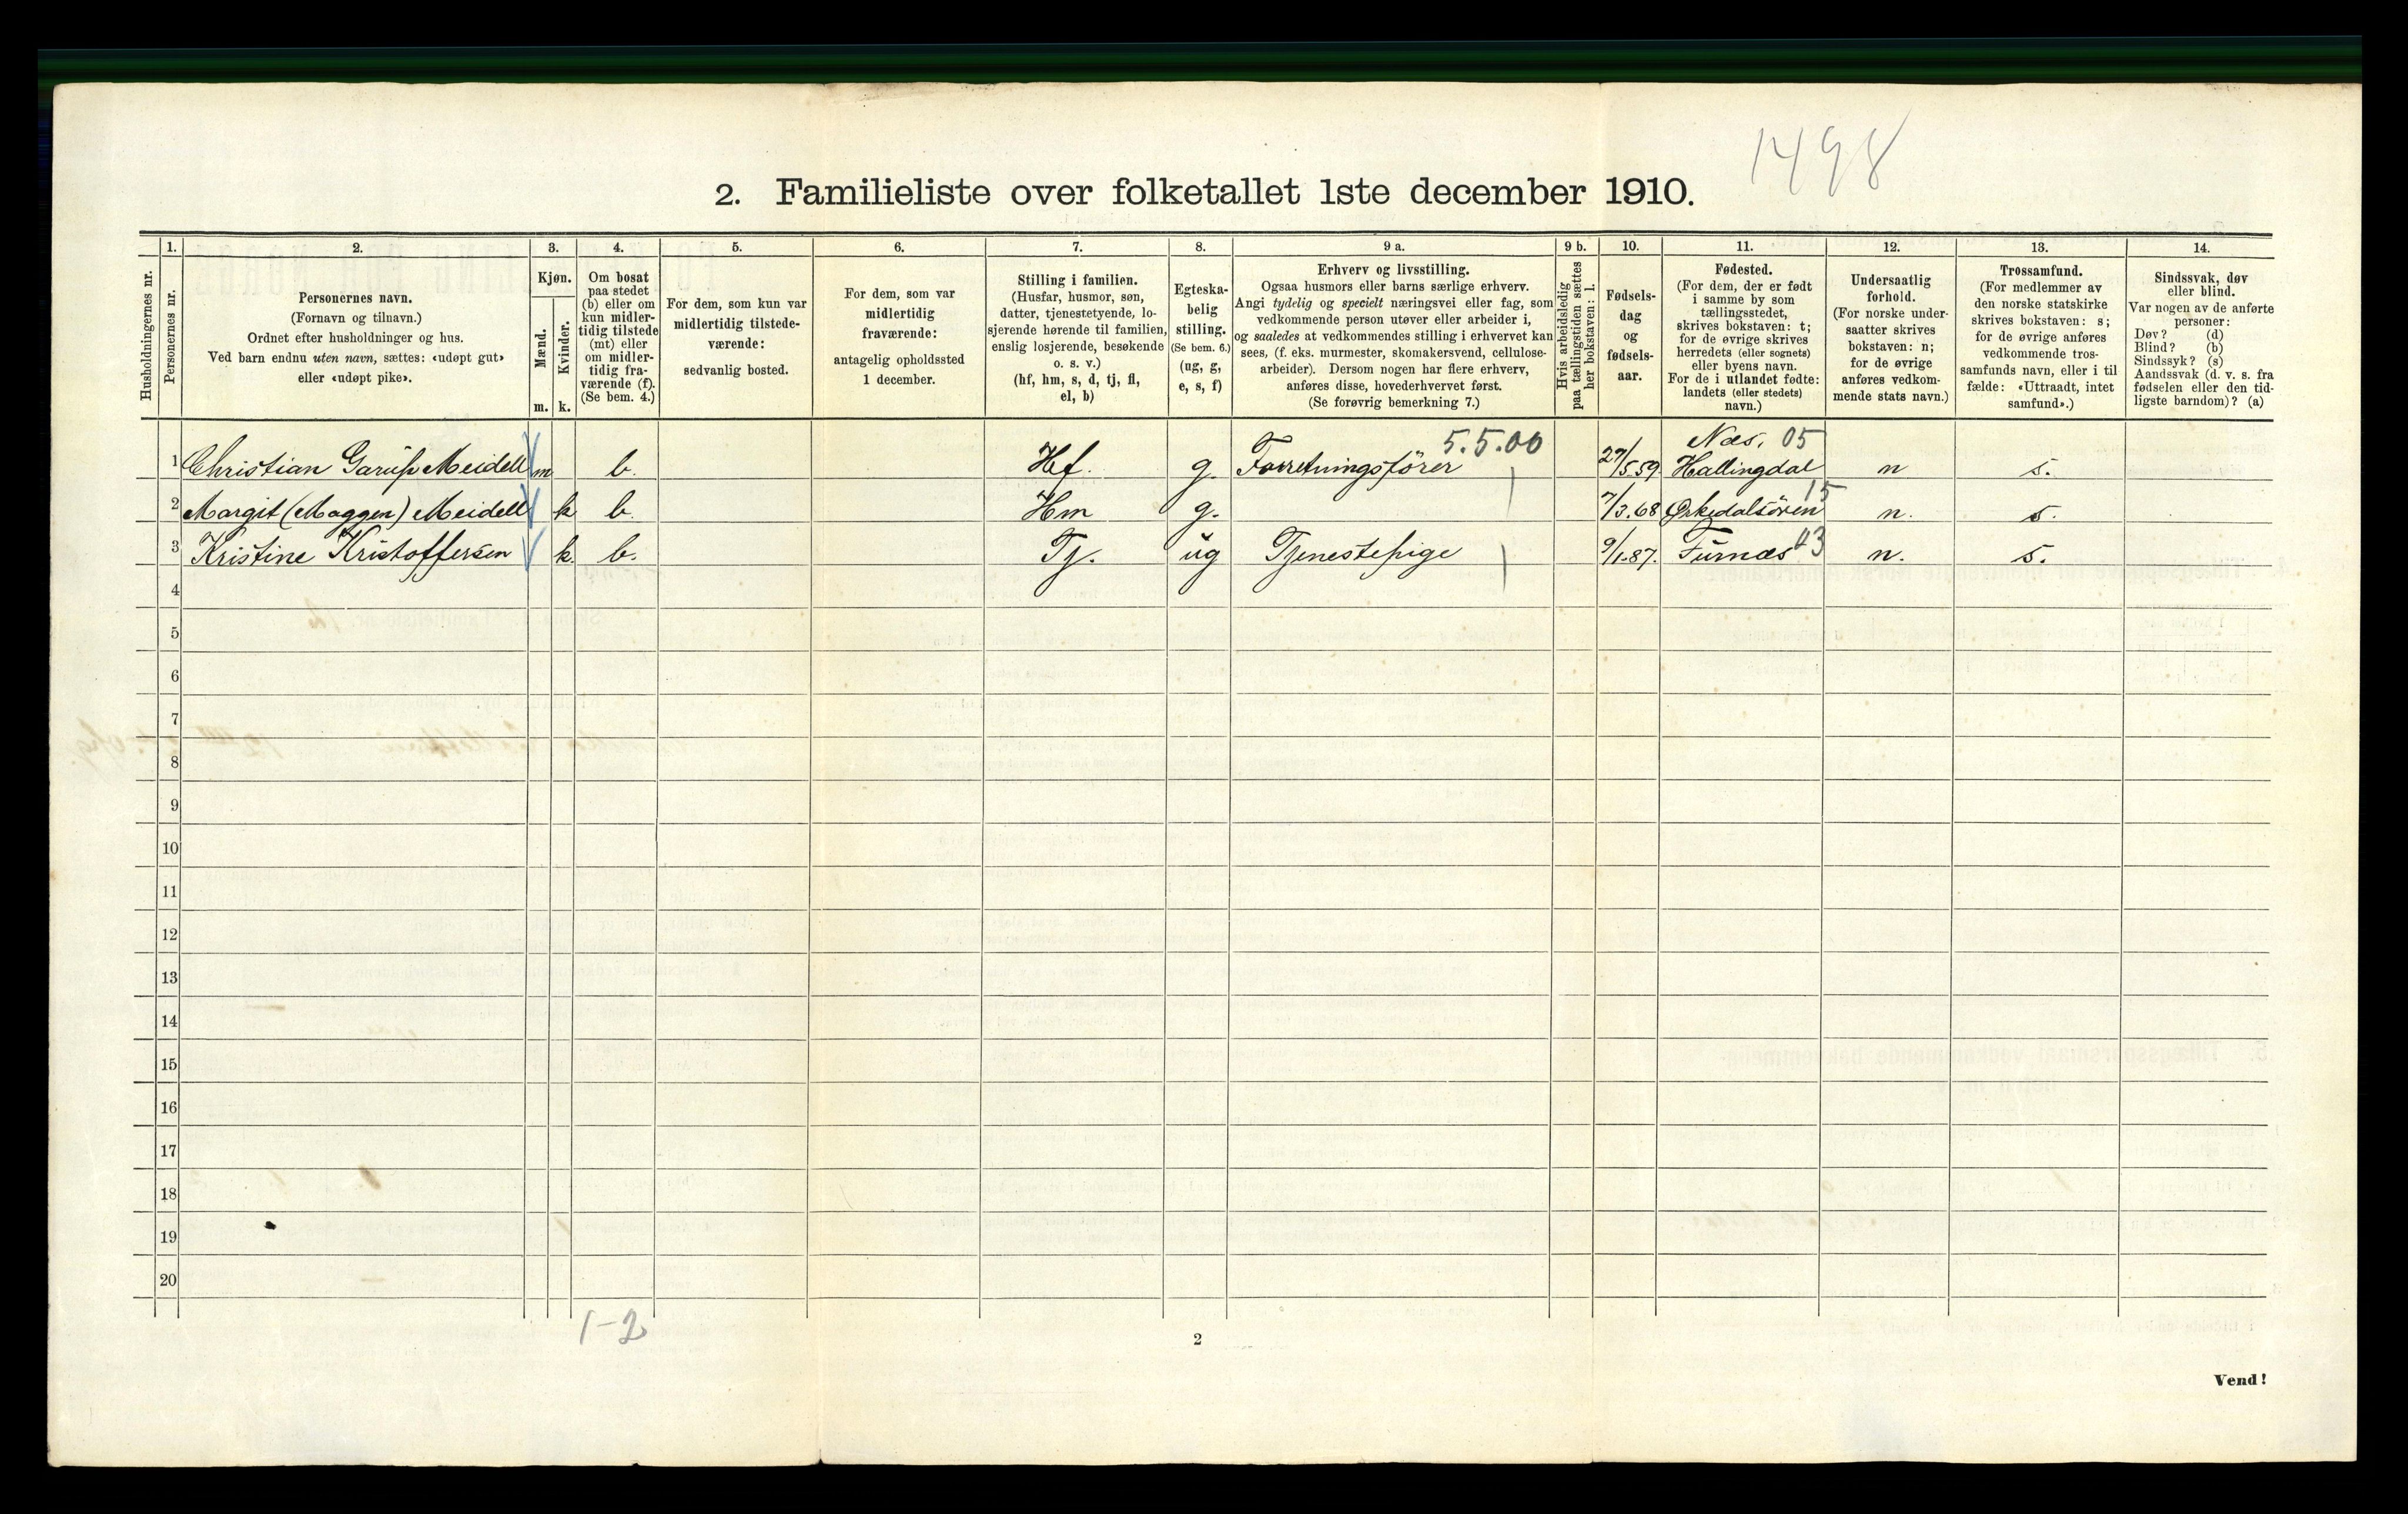 1498
2. Familieliste over folketallet 1ste december 1910.
Husholdningernes nr.
1.
Personernes nr.
2.
Personernes navn.
(Fornavn og tilnavn.)
Ordnet efter husholdninger og hus.
Ved barn endnu uten navn, sættes: «udøpt gut»
eller «udøpt pike».
3.
Kjøn.
Mænd.
Kvinder.
m. k.
4.
Om bosat
paa stedet
(b) eller om
kun midler-
tidig tilstede
(mt) eller
om midler-
tidig fra-
værende (f).
(Se bem. 4.)
5.
For dem, som kun var
midlertidig tilstede-
værende:
sedvanlig bosted.
6.
For dem, som var
midlertidig
fraværende:
antagelig opholdssted
1 december.
7.
Stilling i familien.
(Husfar, husmor, søn,
datter, tjenestetyende, lo-
sjerende hørende til familien,
enslig losjerende, besøkende
o. s. v.)
(hf, hm, s, d, tj, fl,
el, b)
8.
Egteska-
belig
stilling.
(Se bem. 6.)
(ug, g,
e, s, f)
9 a.
Erhverv og livsstilling.
Ogsaa husmors eller barns særlige erhverv.
Angi tydelig og specielt næringsvei eller fag, som
vedkommende person utøver eller arbeider i,
og saaledes at vedkommendes stilling i erhvervet kan
sees, (f. eks. murmester, skomakersvend, cellulose-
arbeider). Dersom nogen har flere erhverv,
anføres disse, hovederhvervet først.
(Se forøvrig bemerkning 7.)
9 b.
Hvis arbeidsledig
paa tællingstiden sættes
her bokstaven: l.
10.
Fødsels-
dag
og
fødsels-
aar.
11.
Fødested.
(For dem, der er født
i samme by som
tællingsstedet,
skrives bokstaven: t;
for de øvrige skrives
herredets (eller sognets)
eller byens navn.
For de i utlandet fødte:
landets (eller stedets)
navn.)
12.
Undersaatlig
forhold.
(For norske under-
saatter skrives
bokstaven: n;
for de øvrige
anføres vedkom-
mende stats navn.)
13.
Trossamfund.
(For medlemmer av
den norske statskirke
skrives bokstaven: s;
for de øvrige anføres
vedkommende tros-
samfunds navn, eller i til
fælde: «Uttraadt, intet
samfund».)
14.
Sindssvak, døv
eller blind.
Var nogen av de anførte
personer:
Døv? (d)
Blind? (b)
Sindssyk? (s)
Aandssvak (d. v. s. fra
fødselen eller den tid-
ligste barndom)? (a)
5.5.00 Næs, 05
1 Christian Garup Meidell m b. Hf. g. Forretningsfører 27/5.59 Hallingdal n s.
15
2 Margit (Maggen) Meidell k b. Hm g. 7/3.68 Ørkedalsören n. s.
43
3 Kristine Kristoffersen k. b. Tj. ug Tjenestepige 9/1.87. Furnæs n. s.
4
5
6
7
8
9
10
11
12
13
14
15
16
17
18
19
20
1-2
2
Vend!